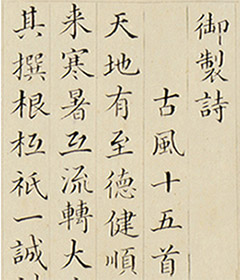 御製詩
古風十五首
天地有至德健順
来寒暑互流轉大
其撰根柢祇一誠